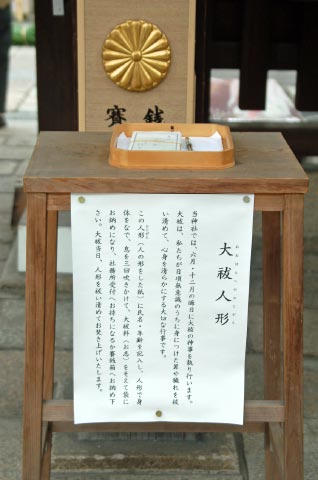 賽銭
大祓人形
おおはらへのひとがた
当神社では、六月・十二月の晦日に大祓の神事を執り行います。
大祓は、私たちが日頃無意識のうちに身につけた罪や穢れを祓
い清めて、心身を清らかにする大切な行事です。
ひとがた
この人形（人の形をした紙）に氏名・年齢を記入し、人形で身
体をなで、息を三回吹きかけて、大祓料（お志）をそえて袋に
お納めになり、社務所受付へお持ちになるか賽銭箱へお納め下
さい。大祓当日、人形を祓い清めてお焚き上げいたします。